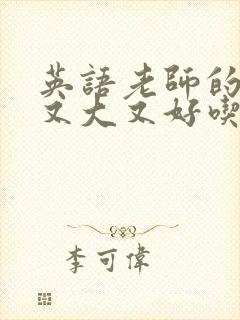 英語老師的
又大又好喫
李可偉